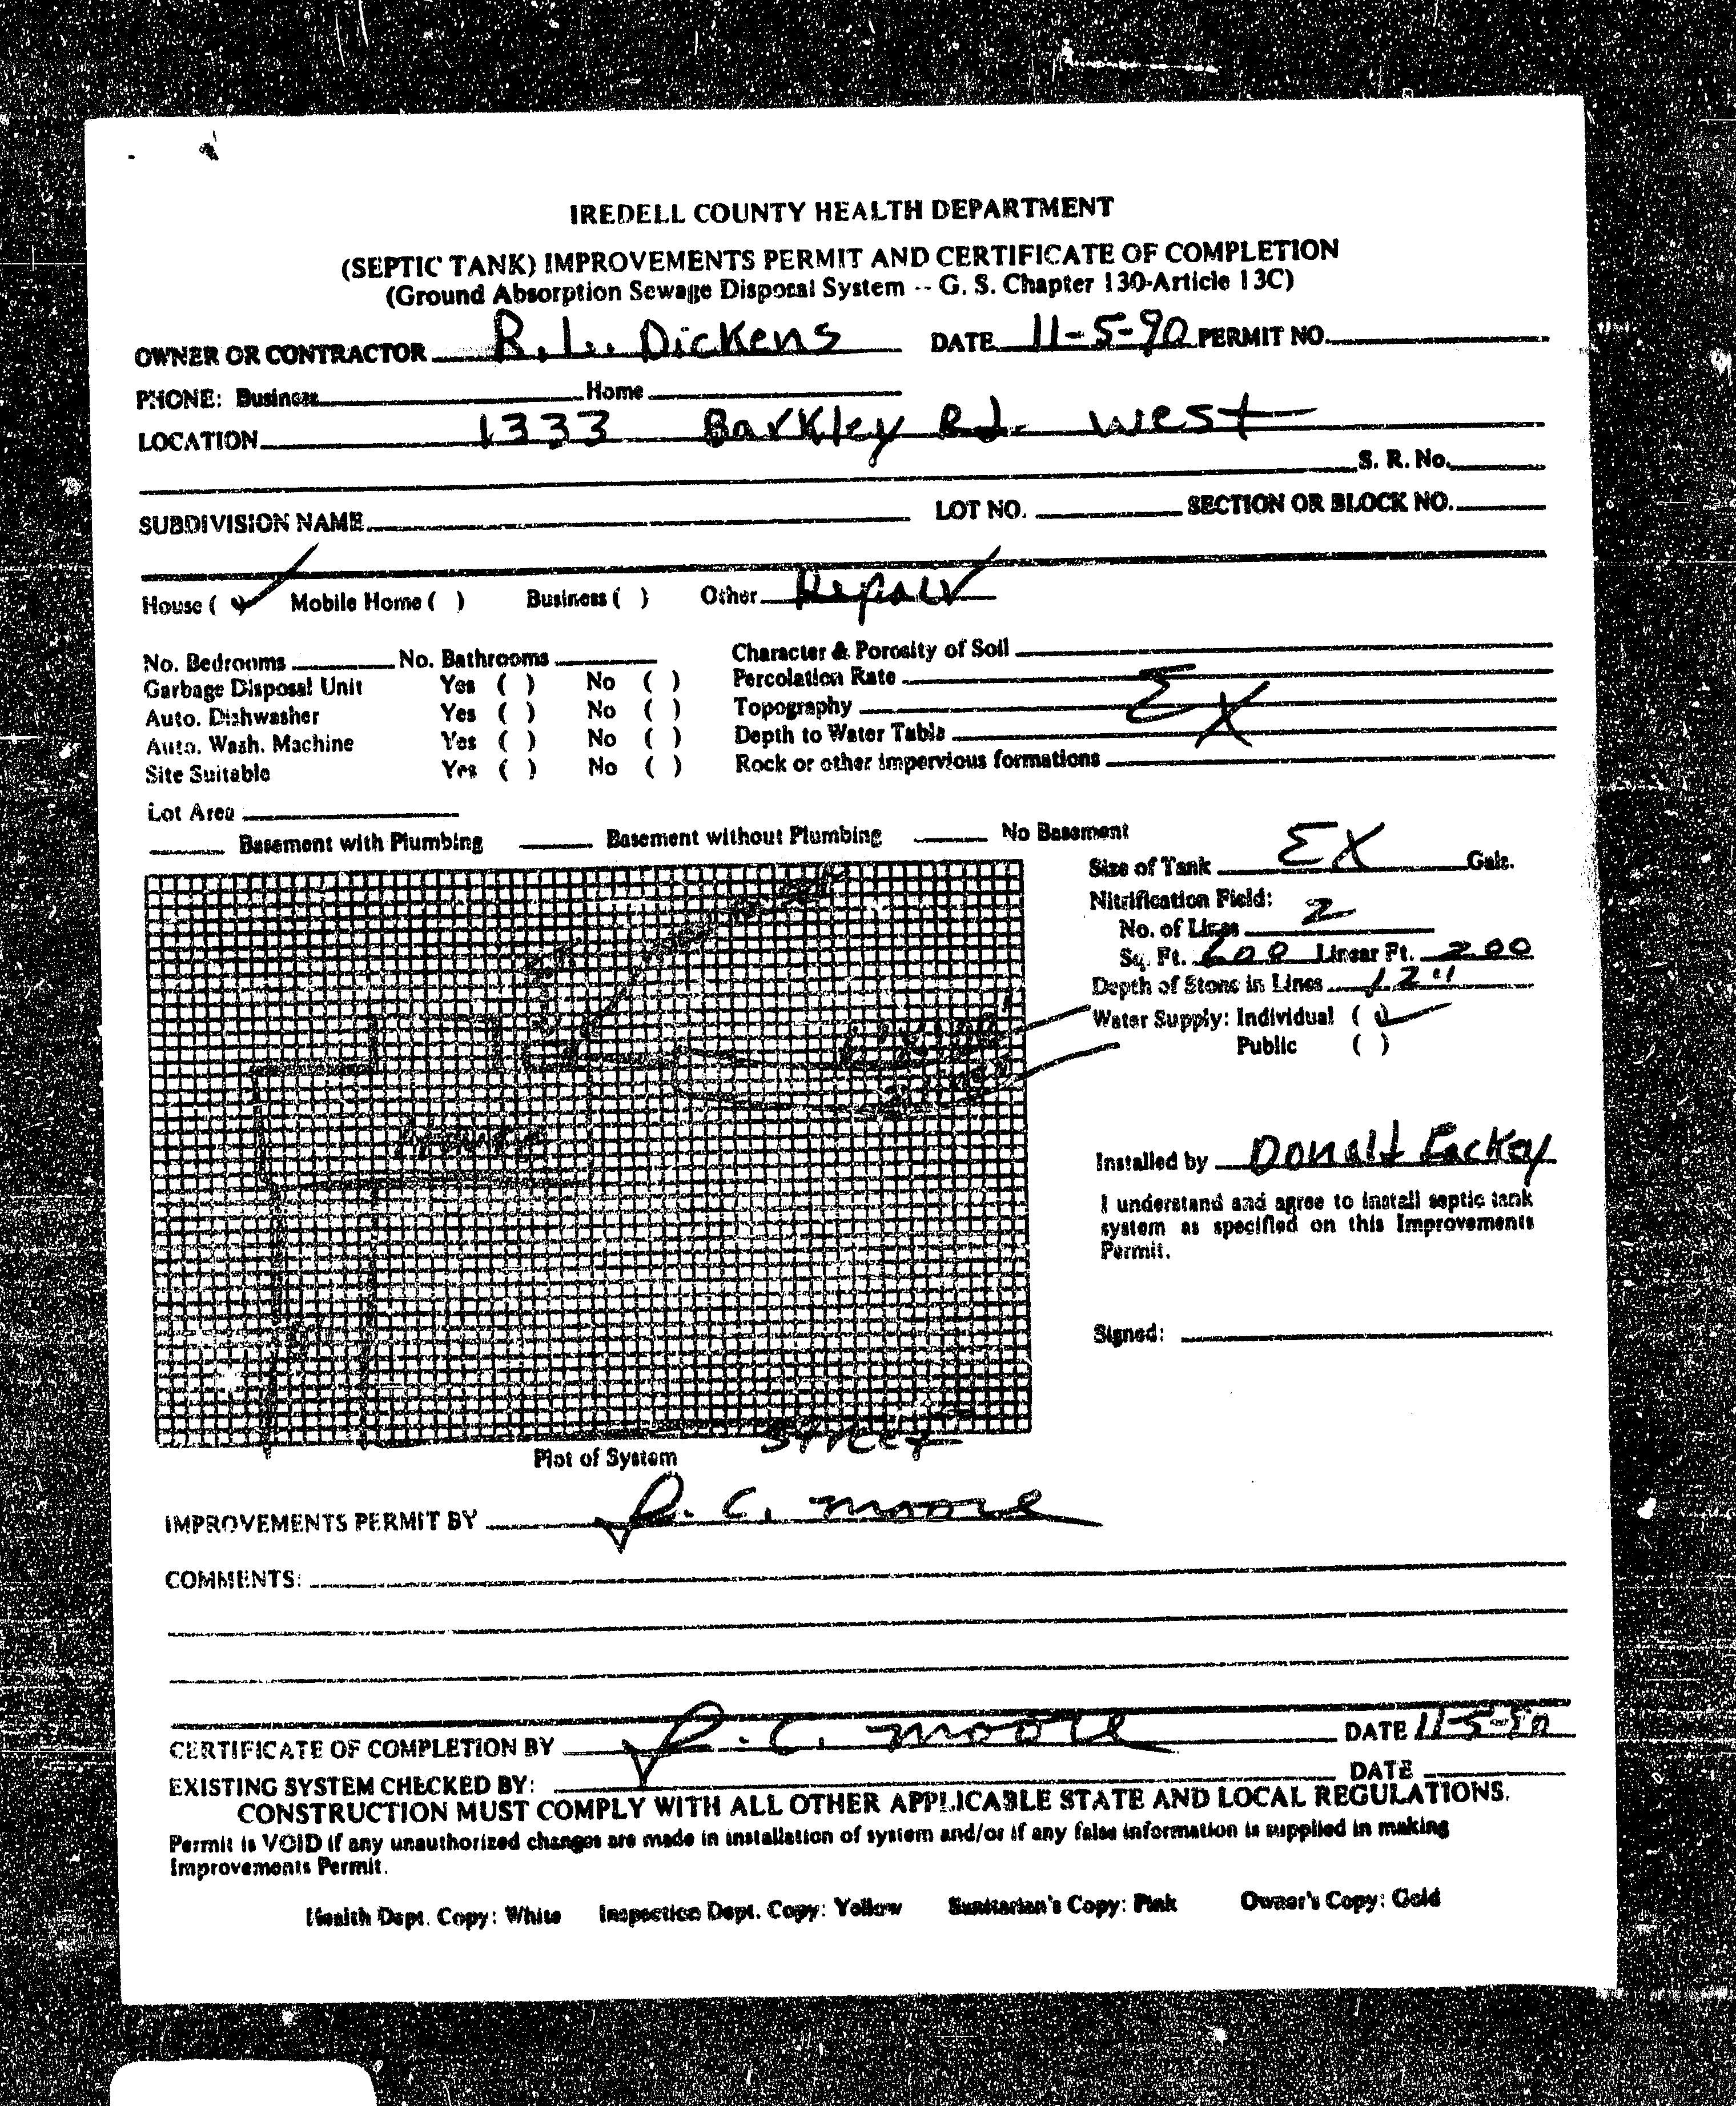 IREDELL COUNTY HEALTH DEPARTMENT
(SEPTIC TANK) IMPROVEMENTS PERMIT AND CERTIFICATE OF COMPLETION
(Ground Absorption Sewage Disposal System -- G. S. Chapter 130-Article 13C)
OWNER OR CONTRACTOR R. L. Dickens DATE 11-5-90 PERMIT NO.
PHONE: Business Home
LOCATION 1333 Barkley Rd. West
S. R. No.
SUBDIVISION NAME LOT NO. SECTION OR BLOCK NO.
House ( ✓ ) Mobile Home ( ) Business ( ) Other Repair
No. Bedrooms No. Bathrooms Character & Porosity of Soil
Garbage Disposal Unit Yes ( ) No ( ) Percolation Rate
Auto. Dishwasher Yes ( ) No ( ) Topography EX
Auto. Wash. Machine Yes ( ) No ( ) Depth to Water Table
Site Suitable Yes ( ) No ( ) Rock or other impervious formations
Lot Area
Basement with Plumbing Basement without Plumbing No Basement
Size of Tank EX Gals.
Nitrification Field:
No. of Lines 2
Sq. Ft. 600 Linear Ft. 200
Depth of Stone in Lines 12"
Water Supply: Individual ( ✓ )
Public ( )
Installed by Donald Lackey
I understand and agree to install septic tank
system as specified on this Improvements
Permit.
Signed:
Street
Plot of System
IMPROVEMENTS PERMIT BY R. C. Moore
COMMENTS:
CERTIFICATE OF COMPLETION BY R. C. Moore DATE 11-5-90
EXISTING SYSTEM CHECKED BY: DATE
CONSTRUCTION MUST COMPLY WITH ALL OTHER APPLICABLE STATE AND LOCAL REGULATIONS.
Permit is VOID if any unauthorized changes are made in installation of system and/or if any false information is supplied in making
Improvements Permit.
Health Dept. Copy: White Inspection Dept. Copy: Yellow Sanitarian's Copy: Pink Owner's Copy: Gold